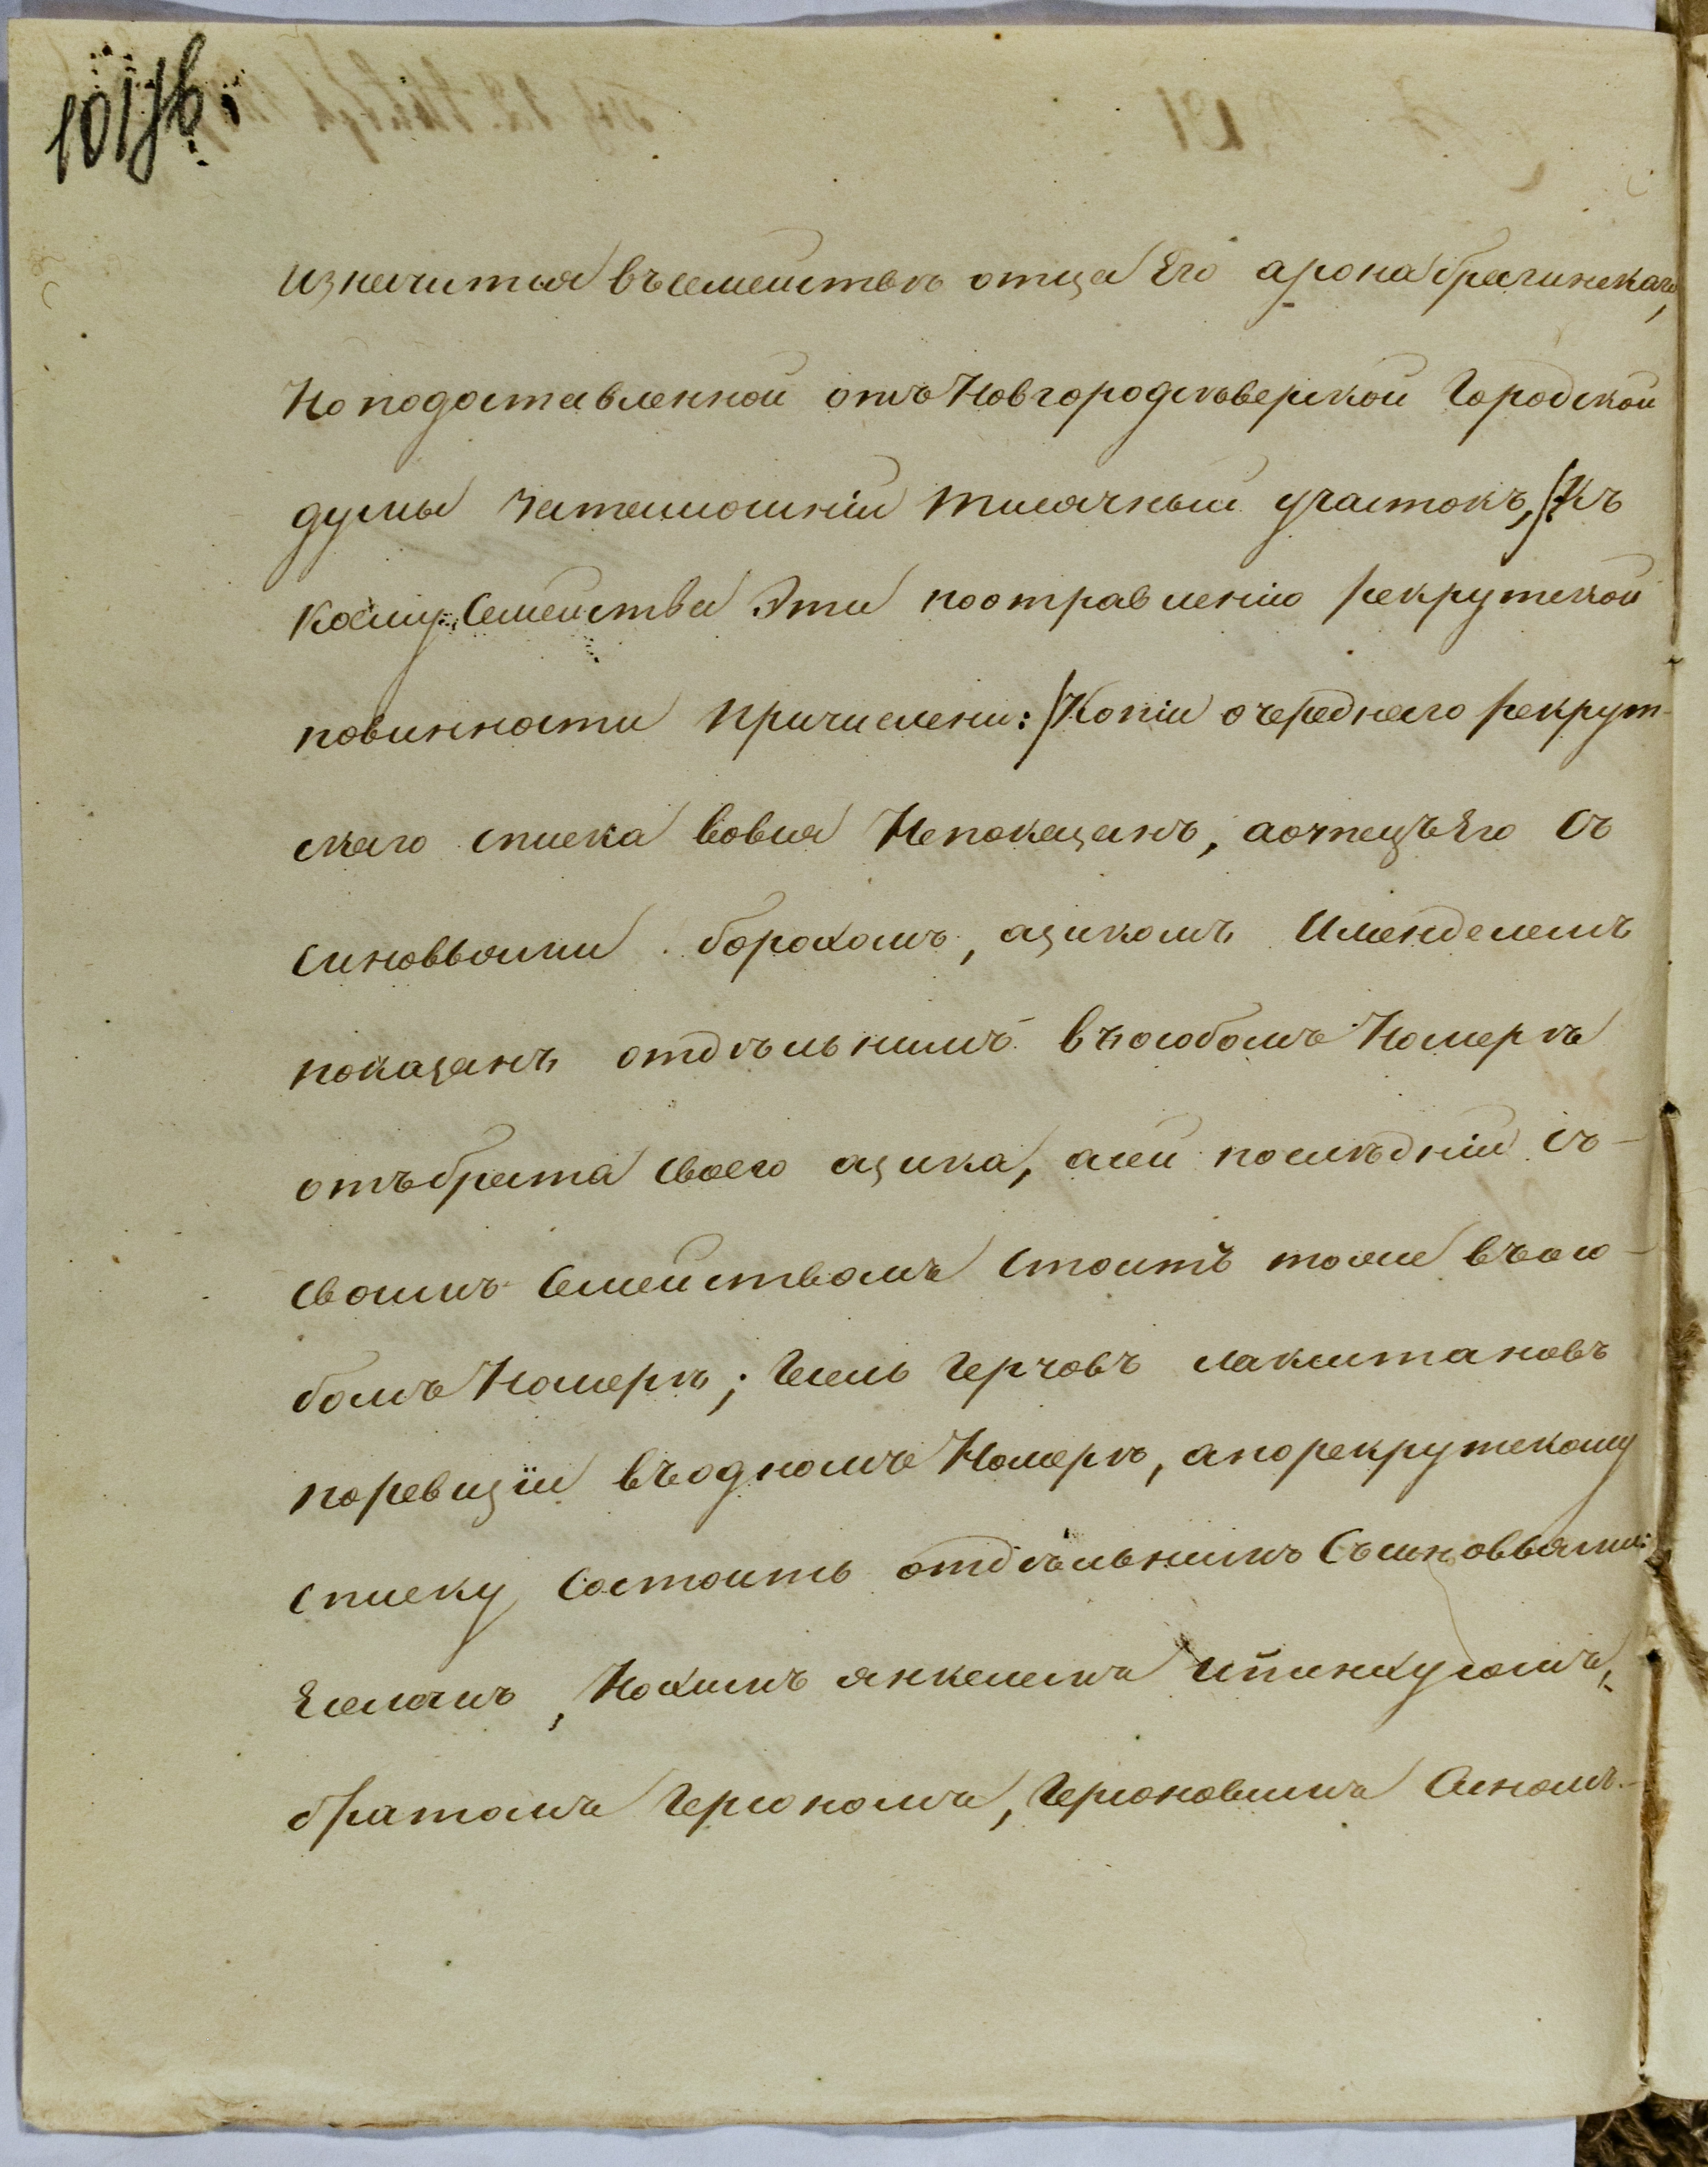 изначится въ семействѣ отца Его арона брагинскаго,
Но подоставленной отъ Новгородсѣверской Городской
думы за тамошній тисячный участокъ, /:Къ
коему Семейства Эти по отправленію рекрутской
повинности причислени:/ Копіи очереднаго рекрут-
скаго списка вовся Непоказанъ, а отецъ Его Съ
Синовьями борохомъ, азикомъ И менделемъ
показанъ отдѣльнимъ въ особомъ Номерѣ
отъ брата Своего азика, а сей послѣдній Съ-
Своимъ Семействомъ Стоитъ тоже въ осо-
бомъ Номерѣ; Гесель Герчовъ лакштановъ
по ревизіи въ одномъ Номерѣ, а по рекрутскому
списку Состоитъ отдѣльнимъ Съ синовьями:
Еселемъ, Нохимъ янкелемъ и пинхусомъ,
братомъ Герсономъ, Герсоновимъ Синомъ-